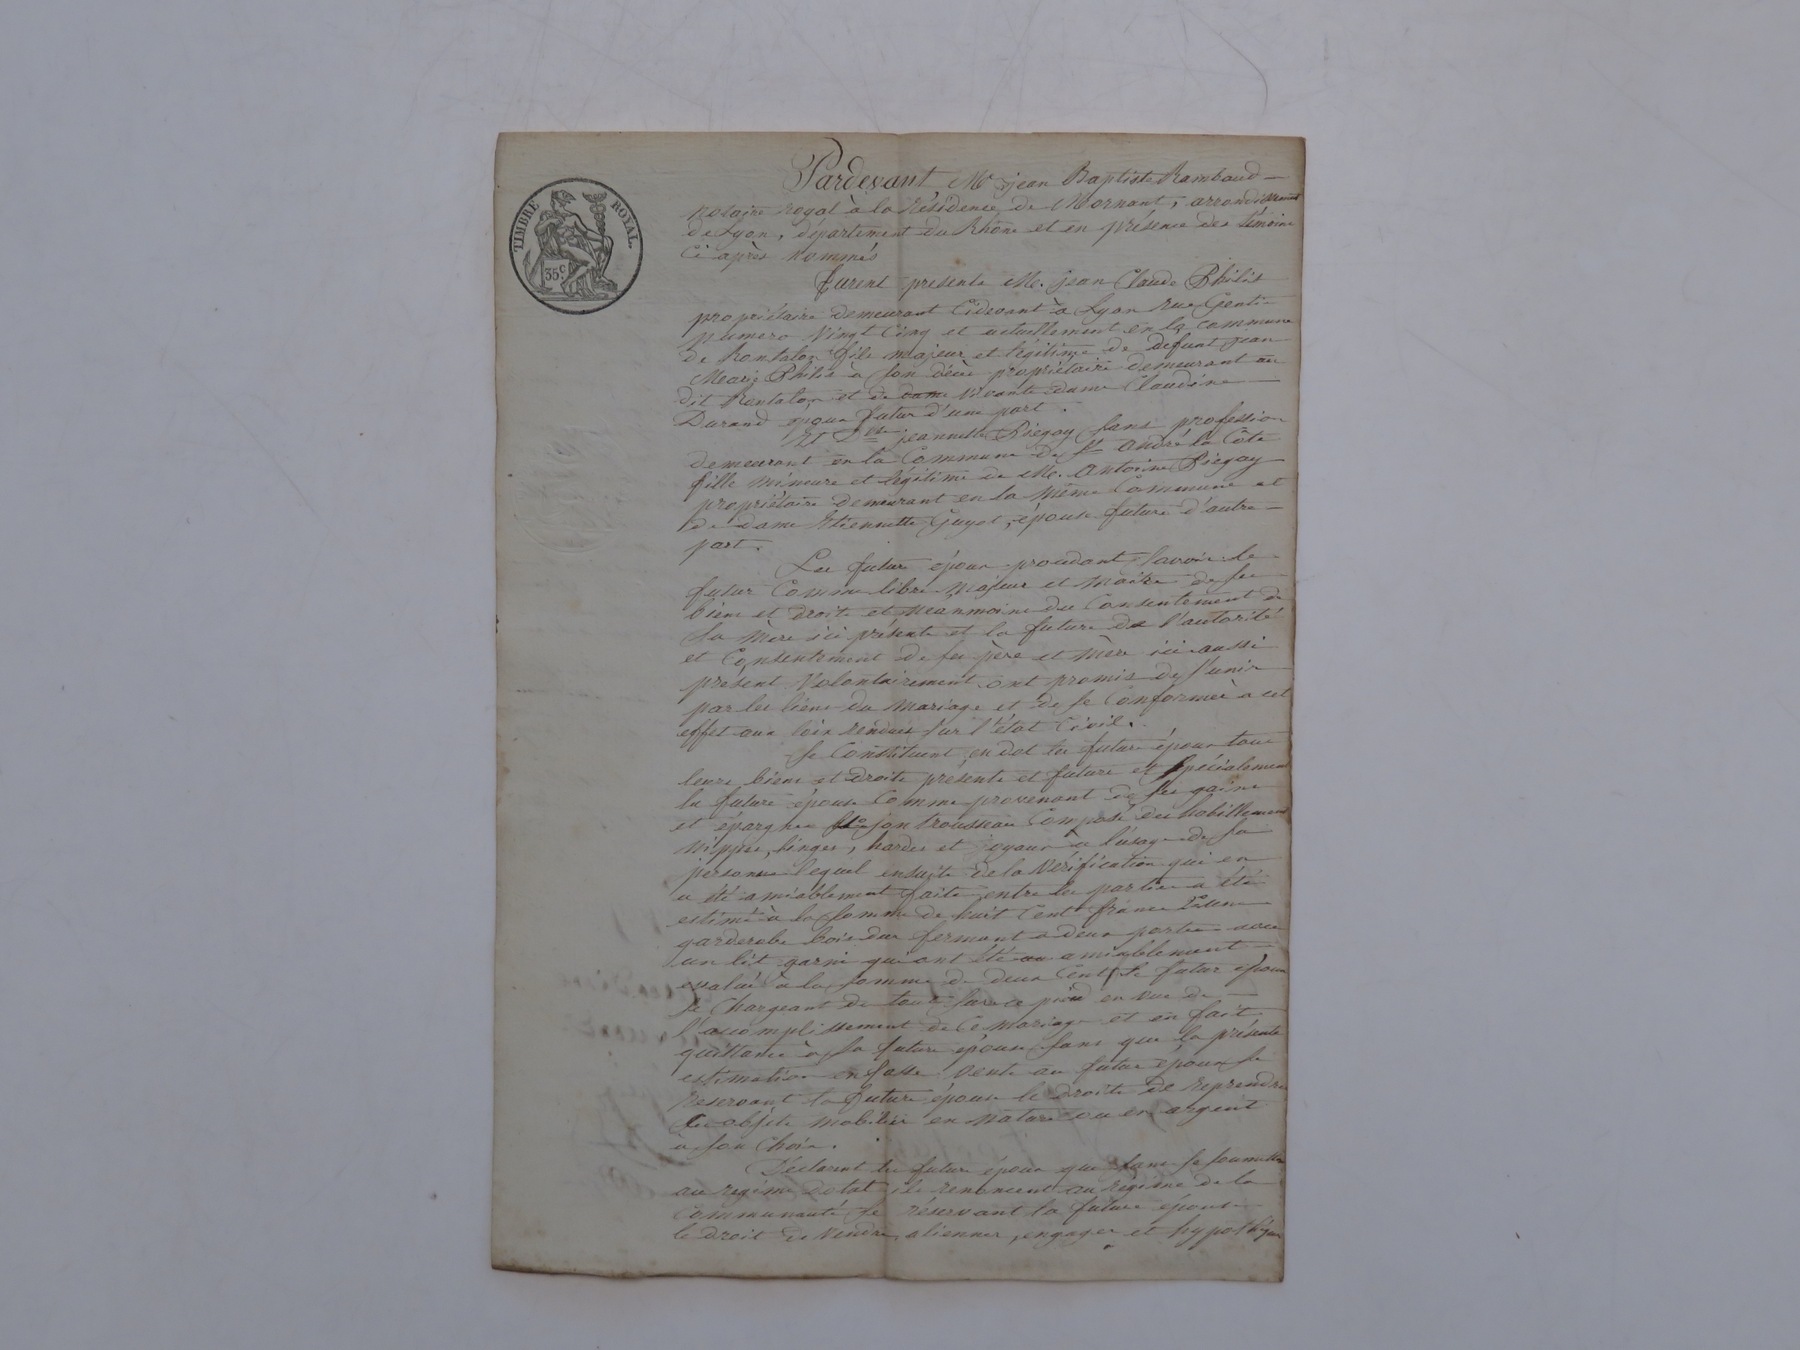 TIMBRE ROYAL.
35 c.
Pardevant Me jean Baptiste Rambaud
notaire royal à la résidence de Mornant, arrondissement
de Lyon, département du Rhône et en présence des témoins
ci après nommés
furent présents Mr. jean Claude Philis
propriétaire demeurant cidevant à Lyon rue Gentil
numero vingt cinq et actuellement en la commune
de Rontalon fils majeur et légitime de défunt jean
Marie Philis à son décès propriétaire demeurant au
dit Rontalon et de vivante dame Claudine
Durand époux futur d'une part.
Et Dlle jeannette Piegay sans profession
demeurant en la Commune de St André la Côte
fille mineure et légitime de Mr. Antoine Piegay
propriétaire demeurant en la même Commune et
de dame Etiennette Guyot, épouse future d'autre
part.
Les futurs époux procédant savoir le
futur Comme libre majeur et maitre de ses
biens et droits et néanmoins du Consentement de
sa mère ici présente et la future de l'autorité
et Consentement de ses père et mère ici aussi
présent volontairement ont promis de s'unir
par les liens du mariage et de se Conformer à cet
effet aux loix rendues sur l'état Civil.
Se Constituent en dot les futurs époux tous
leurs biens et droits présents et futurs et spécialement
la future épouse Comme provenant de ses gains
et épargnes son trousseau Composé des habillements
nippes, linges, hardes et joyaux à l'usage de sa
personne lequel ensuite de la vérification qui en
a été amiablement faite entre les parties a été
estimé à la somme de huit cent francs
garderobe bois dur fermant à deux portes avec
un lit garni qui ont été amiablement
évalués à la somme de deux Cent, le futur époux
se Chargeant de tous en vue de
l'accomplissement de Ce mariage et en fait
quittance à sa future épouse sans que la présente
estimation en fasse vente au futur époux se
reservant la future épouse le droit de reprendre
les objets mobilier en nature ou en argent
à son Choix.
Déclarent les futurs époux que sans se soumettre
au régime dotal ils renoncent au régime de la
Communauté se réservant la future épouse
le droit de vendre, alienner, engager et hypothéquer